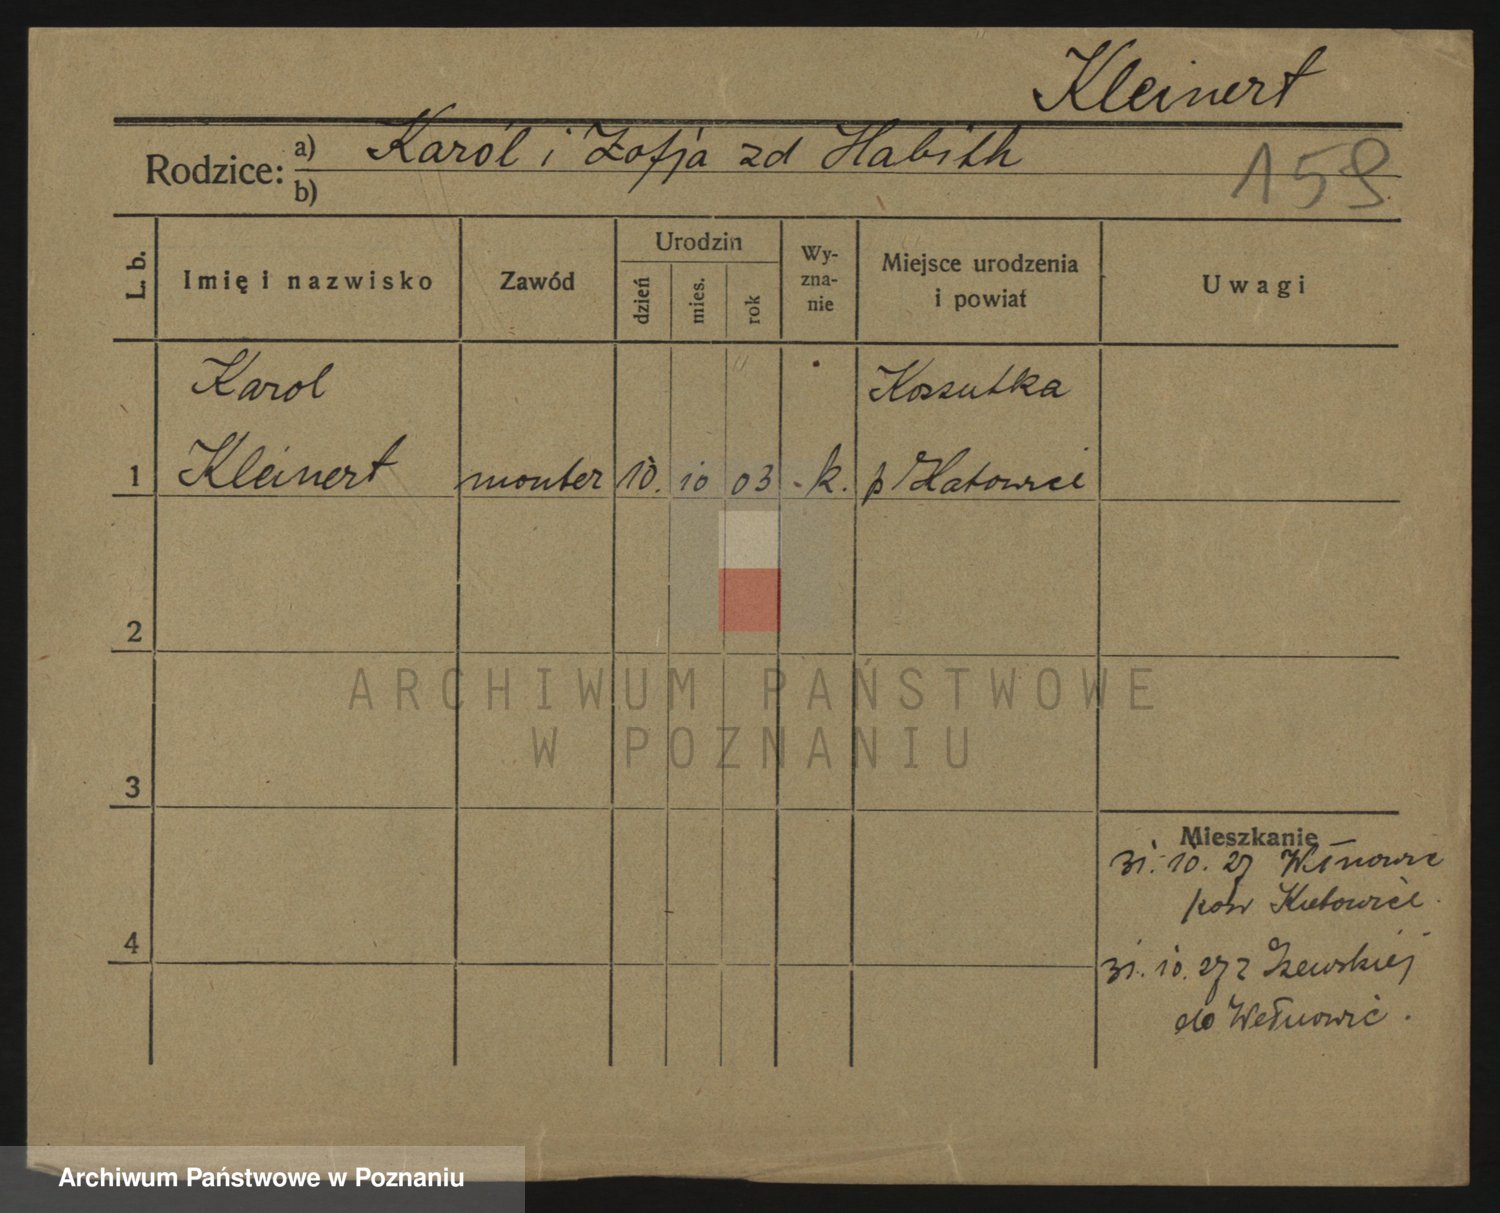 Kleinert
Rodzice: a) Karól i Zofja zd Habith
b)
159
L. b.
Imię i nazwisko
Zawód
Urodzin
dzień
mies.
rok
Wy-
zna-
nie
Miejsce urodzenia
i powiat
Uwagi
Karol
Kossutka
1 Kleinert monter 10. 10 03 k. p Katowice
2
ARCHIWUM PAŃSTWOWE
W POZNANIU
3
Mieszkanie
31. 10. 27
pow Katowice.
4
31. 10. 27 z
do Wełnowic.
Archiwum Państwowe w Poznaniu